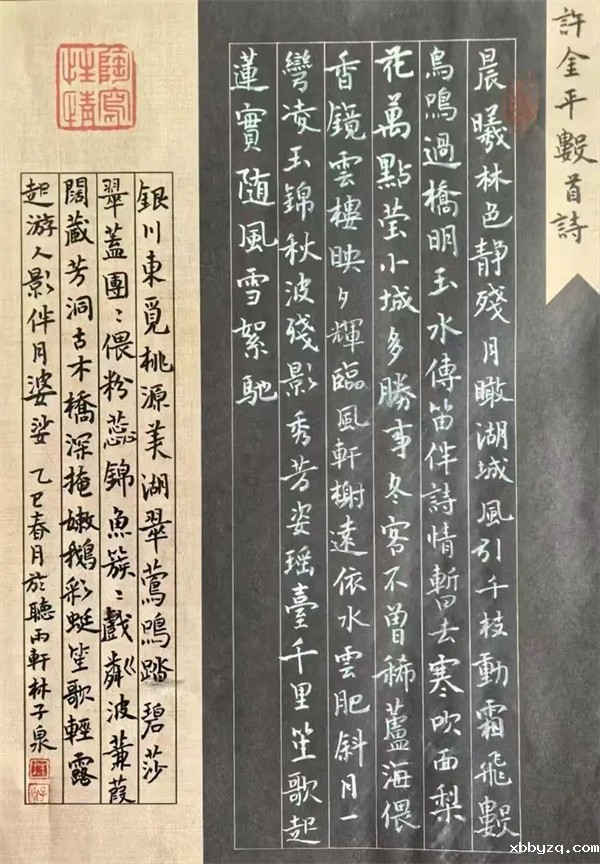 許金平數首詩
晨曦林色靜殘月瞰湖城風引千枝動霜飛數
鳥鳴過橋明玉水傳笛伴詩情暫去寒吹面梨
花萬點莹小城多勝事冬客不曾稀蘆海偎
香鏡雲樓映夕輝臨風軒榭遠依水雲肥斜月一
彎凌玉錦秋波殘影秀芳姿瑶臺千里笙歌起
蓮實随風雪絮馳
陶寫性情
銀川東覓桃源美湖翠鶯鳴踏碧莎
翠蓋團〻偎粉蕊錦魚簇〻戲粼波蒹葭
闊藏芳洞古木橋深掩嫩鵝彩蜓笙歌輕露
起游人影伴月婆娑 乙巳春月於聽雨軒林子泉
xbbyzq.com